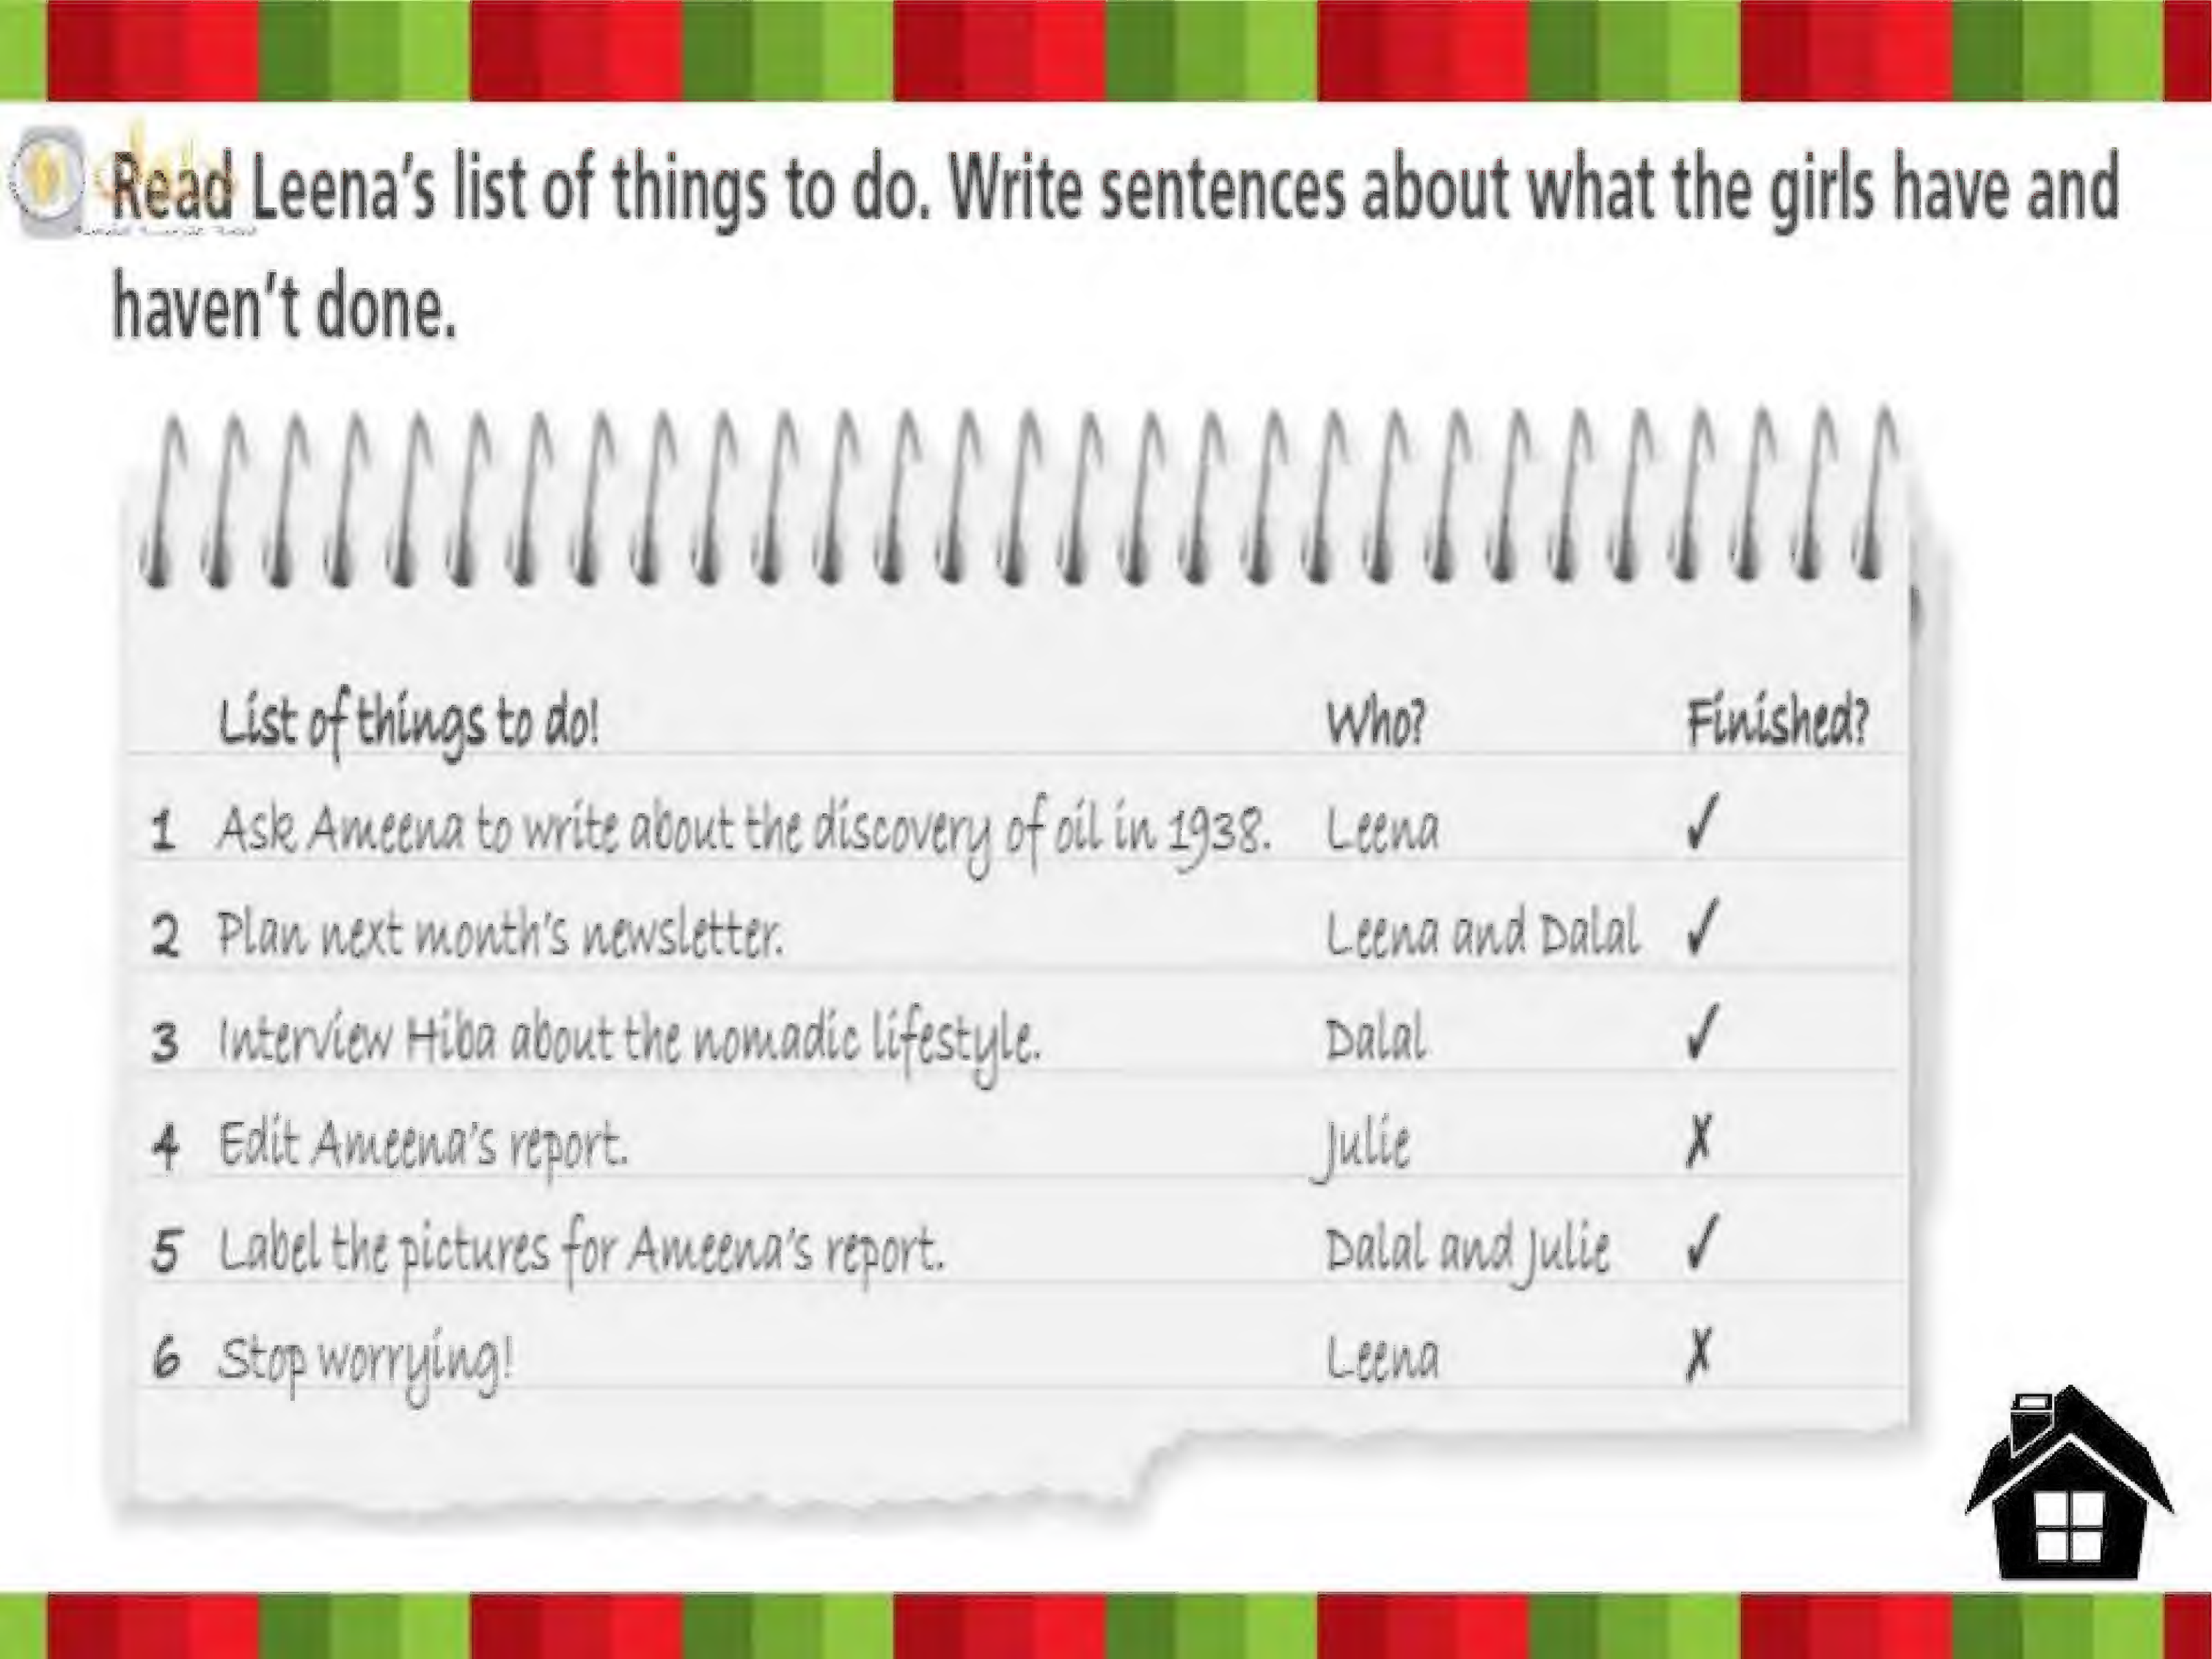 Read Leena's list of things to do. Write sentences about what the girls have and
haven't done.
List of things to do! Who? Finished?
1 Ask Ameena to write about the discovery of oil in 1938. Leena ✓
2 Plan next month's newsletter. Leena and Dalal ✓
3 Interview Hiba about the nomadic lifestyle. Dalal ✓
4 Edit Ameena's report. Julie ✗
5 Label the pictures for Ameena's report. Dalal and Julie ✓
6 Stop worrying! Leena ✗